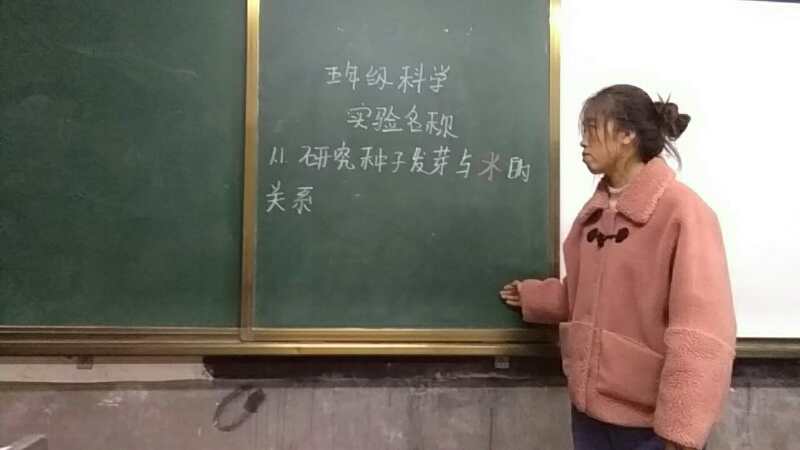 五年级科学
实验名称
1.1. 研究种子发芽与水的
关系